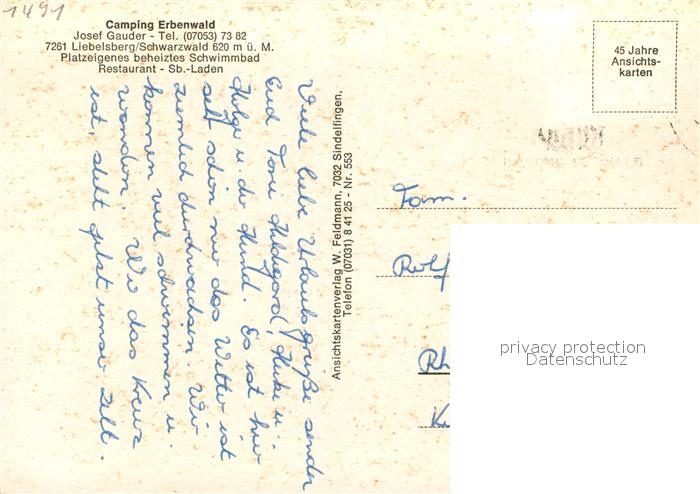 1491
Camping Erbenwald
Josef Gauder - Tel. (07053) 73 82
7261 Liebelsberg/Schwarzwald 620 m ü. M.
Platzeigenes beheiztes Schwimmbad
Restaurant - Sb.-Laden
Viele liebe Urlaubsgrüße senden
Euch Toni, Hildegard, Heike u.
Holger u. der Hund. Es ist hier
sehr schön nur das Wetter ist
ziemlich durchwachsen. Wir
können viel schwimmen u.
wandern. Wo das Kreuz
ist, steht jetzt unser Zelt.
Ansichtskartenverlag W. Feldmann, 7032 Sindelfingen,
Telefon (07031) 8 41 25 - Nr. 553
45 Jahre
Ansichts-
karten
Fam.
Rolf
Rh
privacy protection
Datenschutz